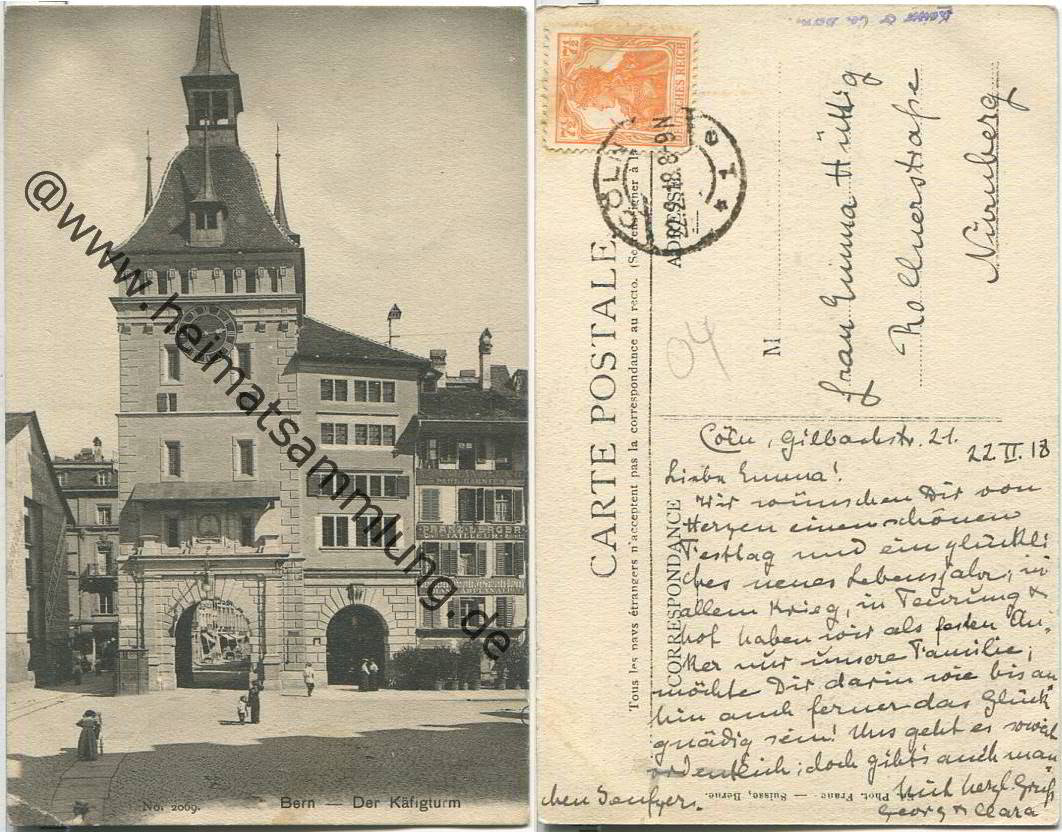 No. 2069.
Bern — Der Käfigturm
@www.heimatsammlung.de
TAILLEUR
7½
7½
DEUTSCHES REICH
CÖLN
22.2.18. 8-9N
* 1 e
CARTE POSTALE
Tous les pays étrangers n'acceptent pas la correspondance au recto. (Se renseigner à la
CORRESPONDANCE
ADRESSE
M
Phot. Franc — Suisse, Berne.
04
Frau Emma Hüttig
Nürnberg
Cöln, Gilbachstr. 21.
22 II. 18
Liebe Emma!
Wir wünschen Dir von
Herzen einen schönen
Festtag und ein glückli
ches neues Lebensjahr; in
allem Krieg, in Teurung &
Not haben wir als festen An-
ker nur unsere Familie;
möchte Dir darin wie bis an
hin auch ferner das Glück
gnädig sein! Uns geht es soweit
ordentlich; doch gibt's auch man-
chen Seufzer.
Mit herzl. Gruß
Georg & Clara